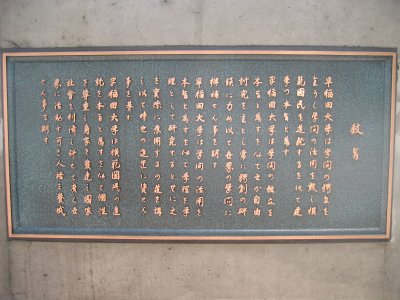 教旨
早稲田大學は学問の独立を
全うし学問の活用を效し模
範國民を造就するを以て建
学の本旨と為す
早稲田大學は学問の独立を
本旨と為すを以て之が自由
討究を主とし常に獨創の研
鑽に力め以て世界の学問に
裨補せん事を期す
早稲田大學は学問の活用を
本旨と為すを以て学理を學
理として研究すると共に之
を實際に應用するの道を講
し以て時世の進運に資せん
事を期す
早稲田大學は模範國民の造
就を本旨と為すを以て個性
を尊重し身家を發達し國家
社會を利濟し併せて廣く世
界に活動す可き人格を養成
せん事を期す